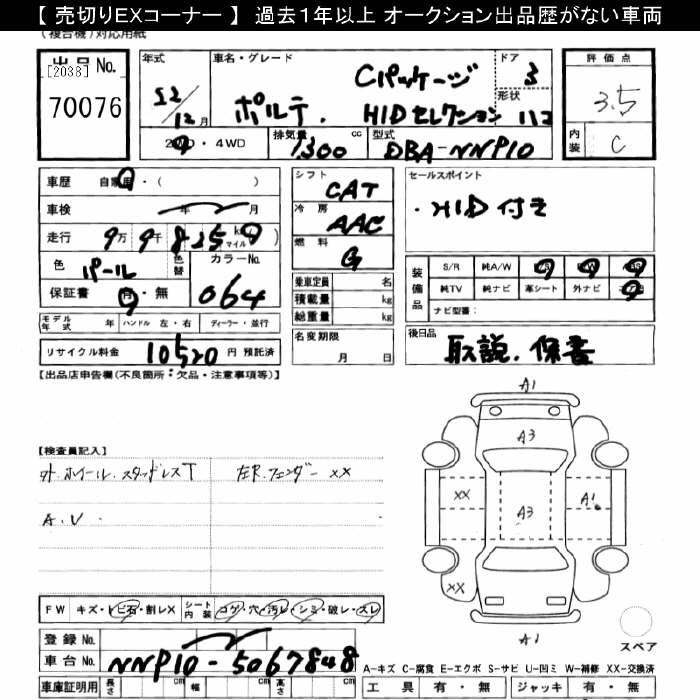 【 売切りEXコーナー 】 過去1年以上 オークション出品歴がない車両
(複合機)対応用紙
出品No.
[2038]
70076
年式
52/12月
車名・グレード
ポルテ. Cパッケージ HIDセレクション
ドア
3
形状
ハコ
評価点
3.5
内装
C
2WD・4WD
排気量
1300 cc
型式
DBA-NNP10
車歴 自家用・( )
車検 年 月
走行 9万 9千 825 km マイル
色 パール
色替
カラーNo.
064
保証書 有・無
モデル年式 年 ハンドル 左・右 ディーラー・並行
リサイクル料金 10520 円 預託済
シフト
CAT
冷房
AAC
燃料
G
乗車定員 名
積載量 kg
総重量 kg
名変期限
月 日
セールスポイント
・HID付き
装備品
S/R 純A/W P/S P/W ABS
純TV 純ナビ 革シート 外ナビ エアB
ナビ型番:
後日品 取説.保書
【出品店申告欄(不良箇所:欠品・注意事項等)】
【検査員記入】
外.ホイール.スタッドレスT 左R.フェンダー XX
A.U
A1
A3
XX
A3
A1
XX
A1
スペア
FW キズ・トビ石・割レX シート内装 コゲ・穴・汚レ・シミ・破レ・スレ
登録No.
車台No. NNP10-5067848
車庫証明用 長さ cm 幅 cm 高さ cm
A-キズ C-腐食 E-エクボ S-サビ U-凹ミ W-補修 XX-交換済
工具 有・無 ジャッキ 有・無